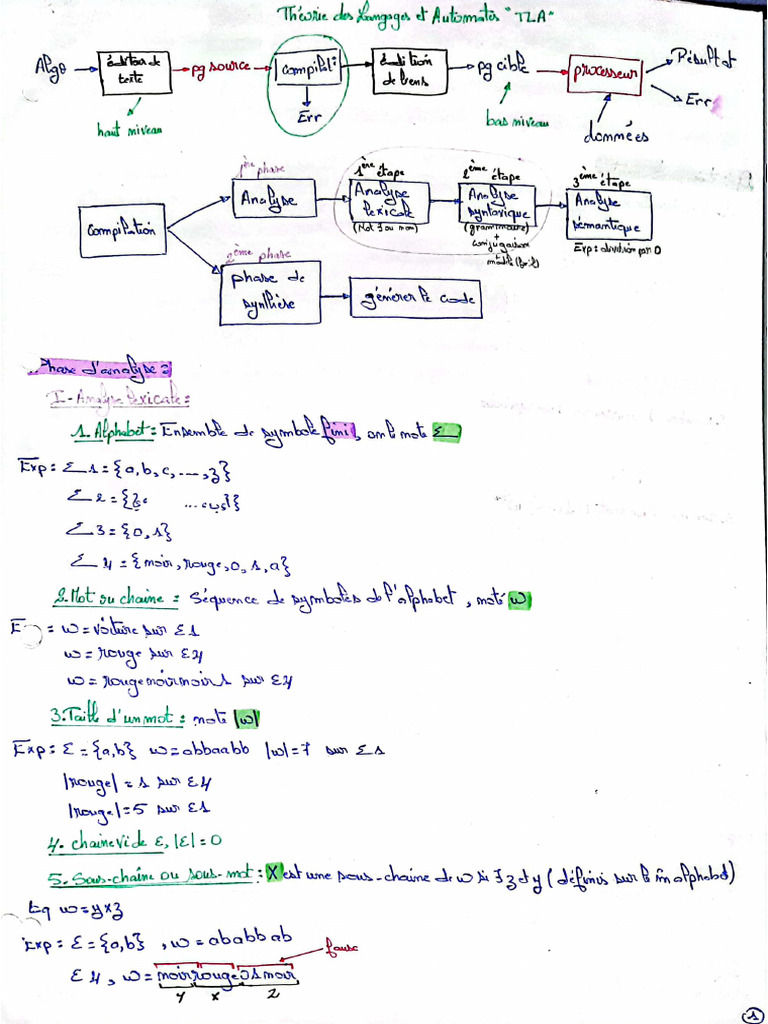 Théorie des Langages et Automates "TLA"
Algo → éditeur de texte → pg source → compilat° → édition de liens → pg cible → processeur → Résultat
Err
Err
haut niveau
bas niveau
données
1ère phase
1ère étape
2ème étape
3ème étape
Compilation
Analyse
Analyse lexicale
Analyse syntaxique
Analyse sémantique
(Mot ∃ ou non)
(grammaire)
+
conjugaison
Exp: division par 0
2ème phase
phase de synthèse
générer le code
Phase d'analyse :
I- Analyse lexicale :
1. Alphabet : Ensemble de symbole fini, on le note Σ
Exp : Σ1 = {a, b, c, ..., z}
Σ2 = {أ, ب, ... ي}
Σ3 = {0, 1}
Σ4 = {noir, rouge, 0, 1, a}
2. Mot ou chaine : Séquence de symboles de l'alphabet, noté w
E = w = voiture sur Σ1
w = rouge sur Σ4
w = rougenoirnoir1 sur Σ4
3. Taille d'un mot : note |w|
Exp : Σ = {a, b} w = abbaabb |w| = 7 sur Σ1
|rouge| = 1 sur Σ4
|rouge| = 5 sur Σ1
4. chaine vide ε, |ε| = 0
5. Sous-chaîne ou sous-mot : X est une sous-chaîne de w si ∃ z et y (définis sur le m̂ alphabet)
tq w = yxz
Exp : Σ = {a, b}, w = ababbab
fausse
Σ4, w = noirrouge01noir
y x z
1